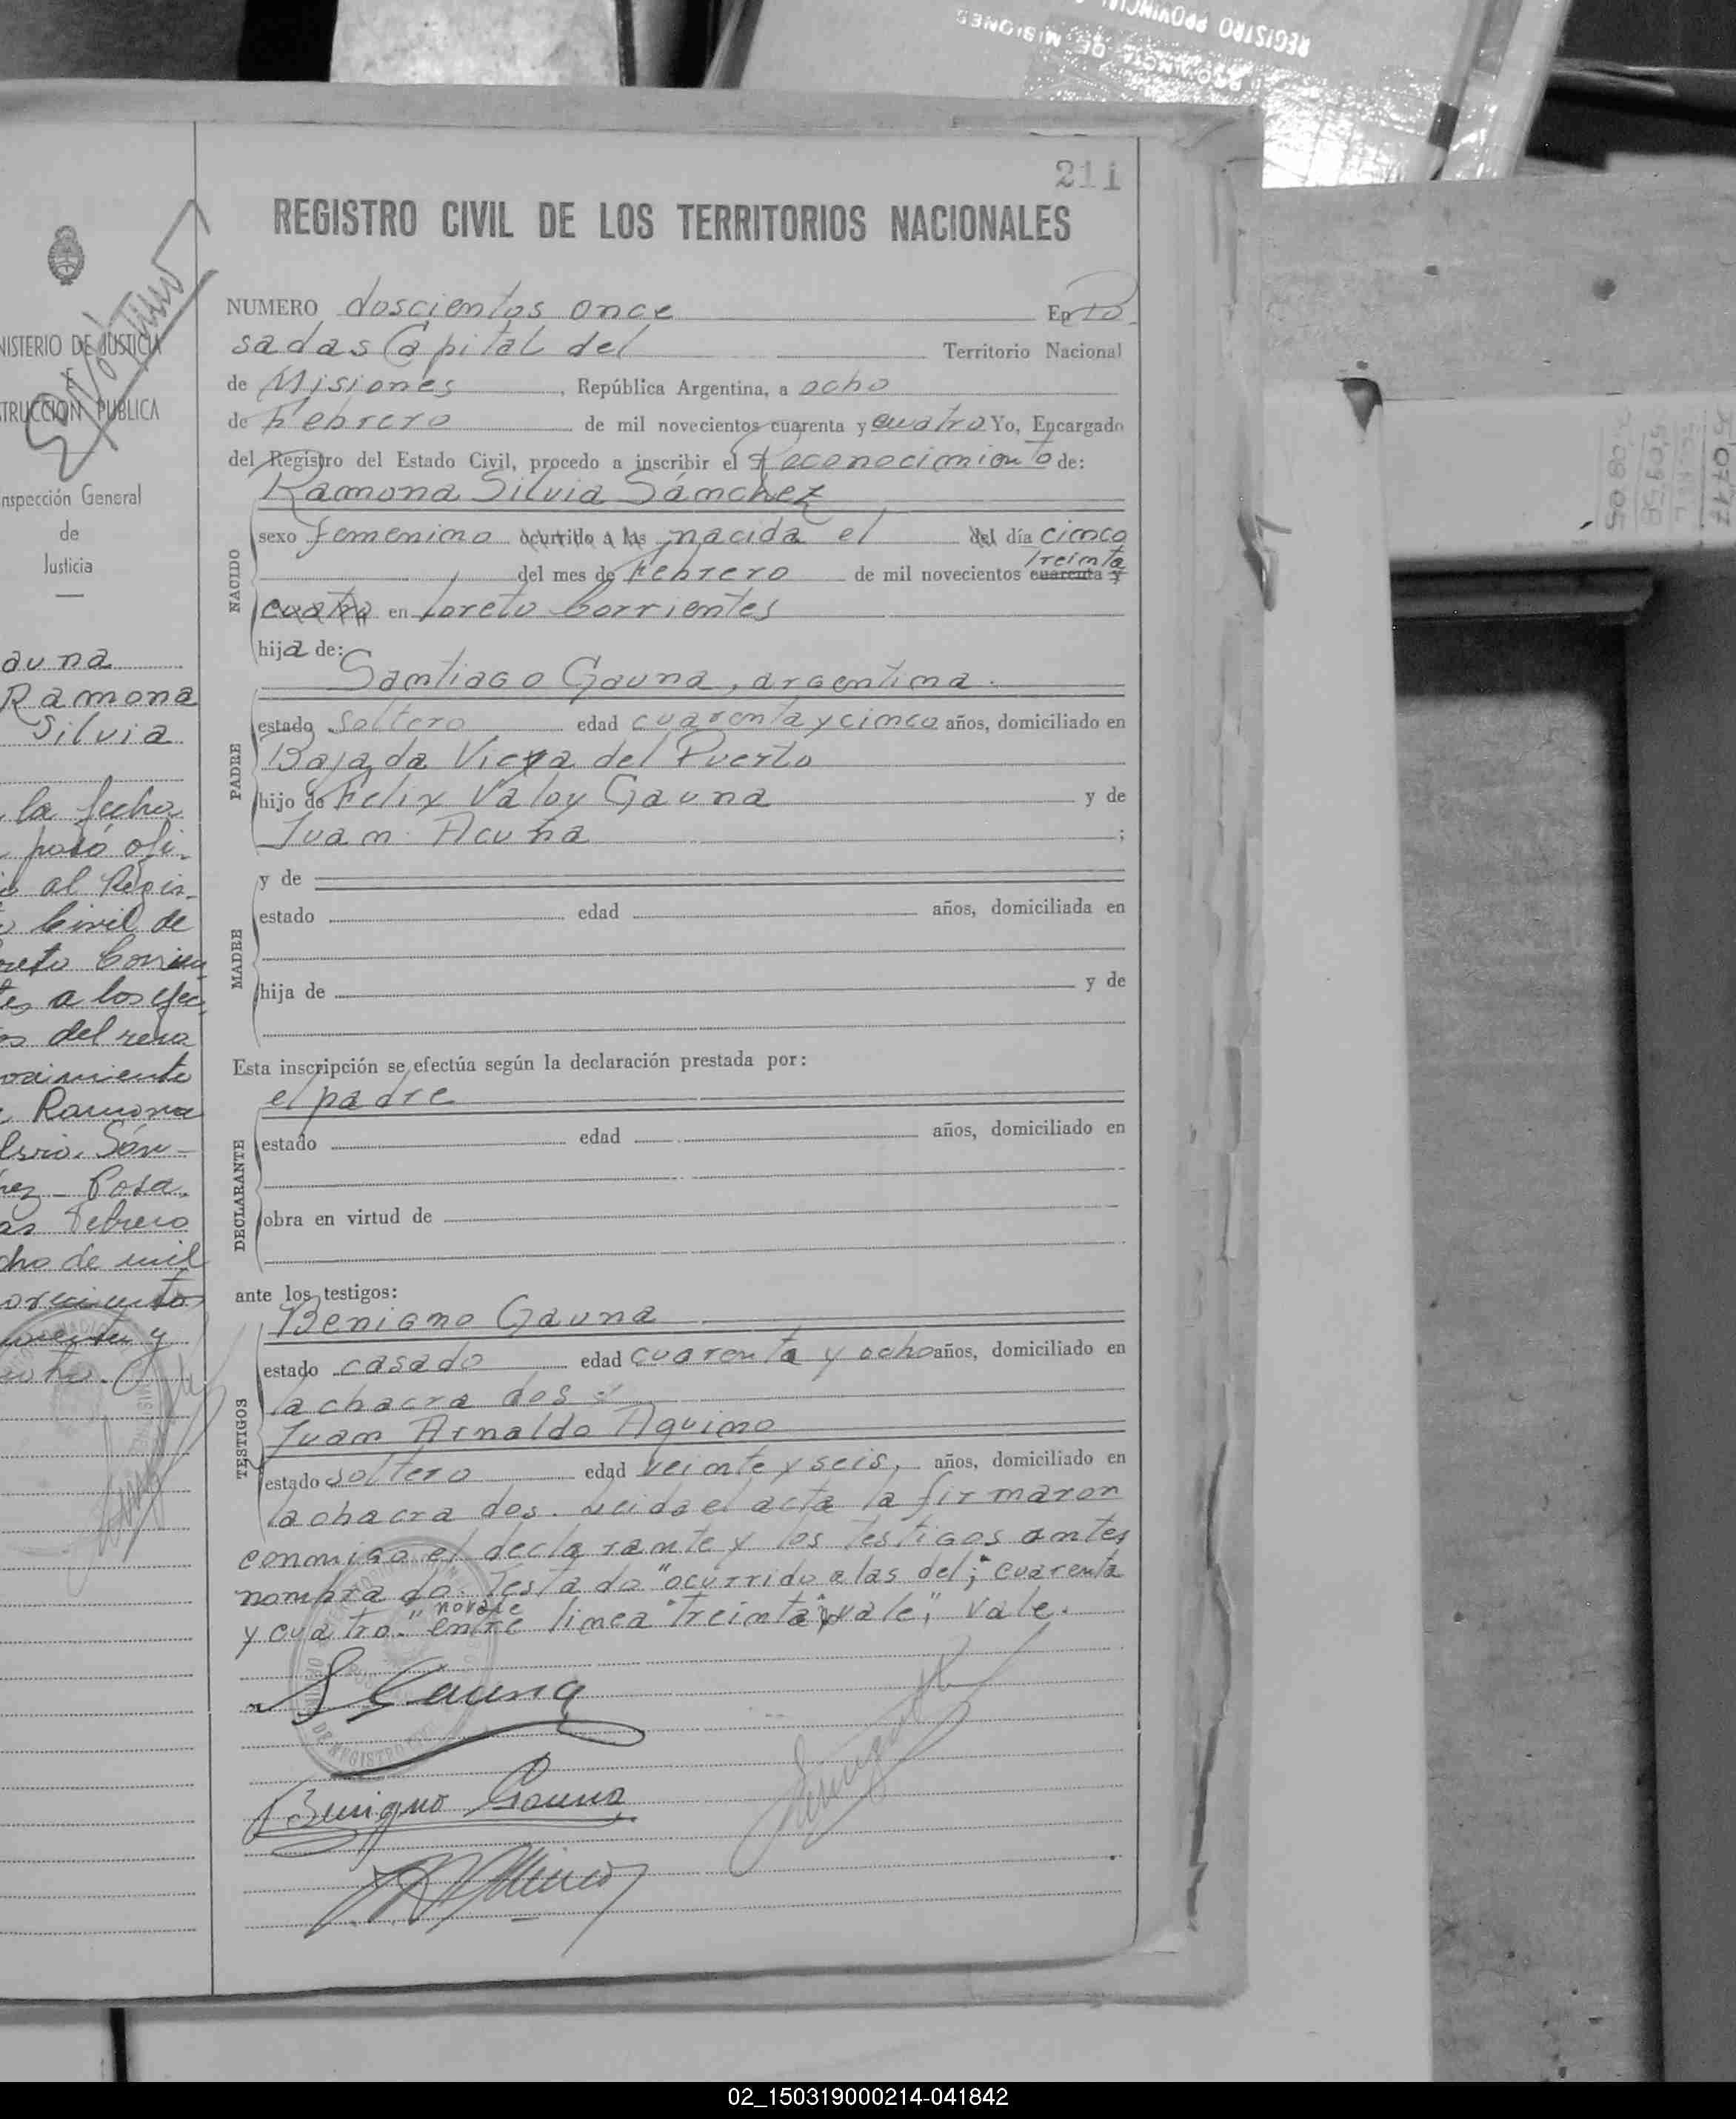 REGISTRO PROVINCIAL
PROVINCIA DE MISIONES
211
REGISTRO CIVIL DE LOS TERRITORIOS NACIONALES
NUMERO doscientos once En Po
sadas Capital del Territorio Nacional
de Misiones, República Argentina, a ocho
de Febrero de mil novecientos cuarenta y cuatro Yo, Encargado
del Registro del Estado Civil, procedo a inscribir el Reconocimiento de:
Ramona Silvia Sánchez
NACIDO
sexo femenino ocurrido a las nacida el del día cinco
treinta
del mes de Febrero de mil novecientos cuarenta y
cuatro en Loreto Corrientes
hija de:
Santiago Gauna, argentina.
PADRE
estado soltero edad cuarenta y cinco años, domiciliado en
Bajada Vieja del Puerto
hijo de Felix Valoy Gauna y de
Juan Acuña ;
MADRE
y de
estado edad años, domiciliada en
hija de y de
Esta inscripción se efectúa según la declaración prestada por:
el padre
DECLARANTE
estado edad años, domiciliado en
obra en virtud de
ante los testigos:
Benigno Gauna
TESTIGOS
estado casado edad cuarenta y ocho años, domiciliado en
la chacra dos
Juan Arnaldo Aquino
estado soltero edad veinte y seis, años, domiciliado en
la chacra dos. Leida el acta la firmaron
conmigo el declarante y los testigos antes
nombrado. Testado "ocurrido a las del; cuarenta
novale
y cuatro." entre linea "treinta" vale", vale.
S Gauna
Benigno Gauna
NISTERIO DE JUSTICIA
E
STRUCCION PUBLICA
Inspección General
de
Justicia
auna
Ramona
Silvia
la fecha
pasó ofi-
al Regis-
Civil de
reto Corrien
tes a los efec
os del reco
nocimiento
Ramona
Silvia Sán-
hez - Posa.
as Febrero
cho de mil
novecientos
cuarenta y
cuatro.
02_150319000214-041842